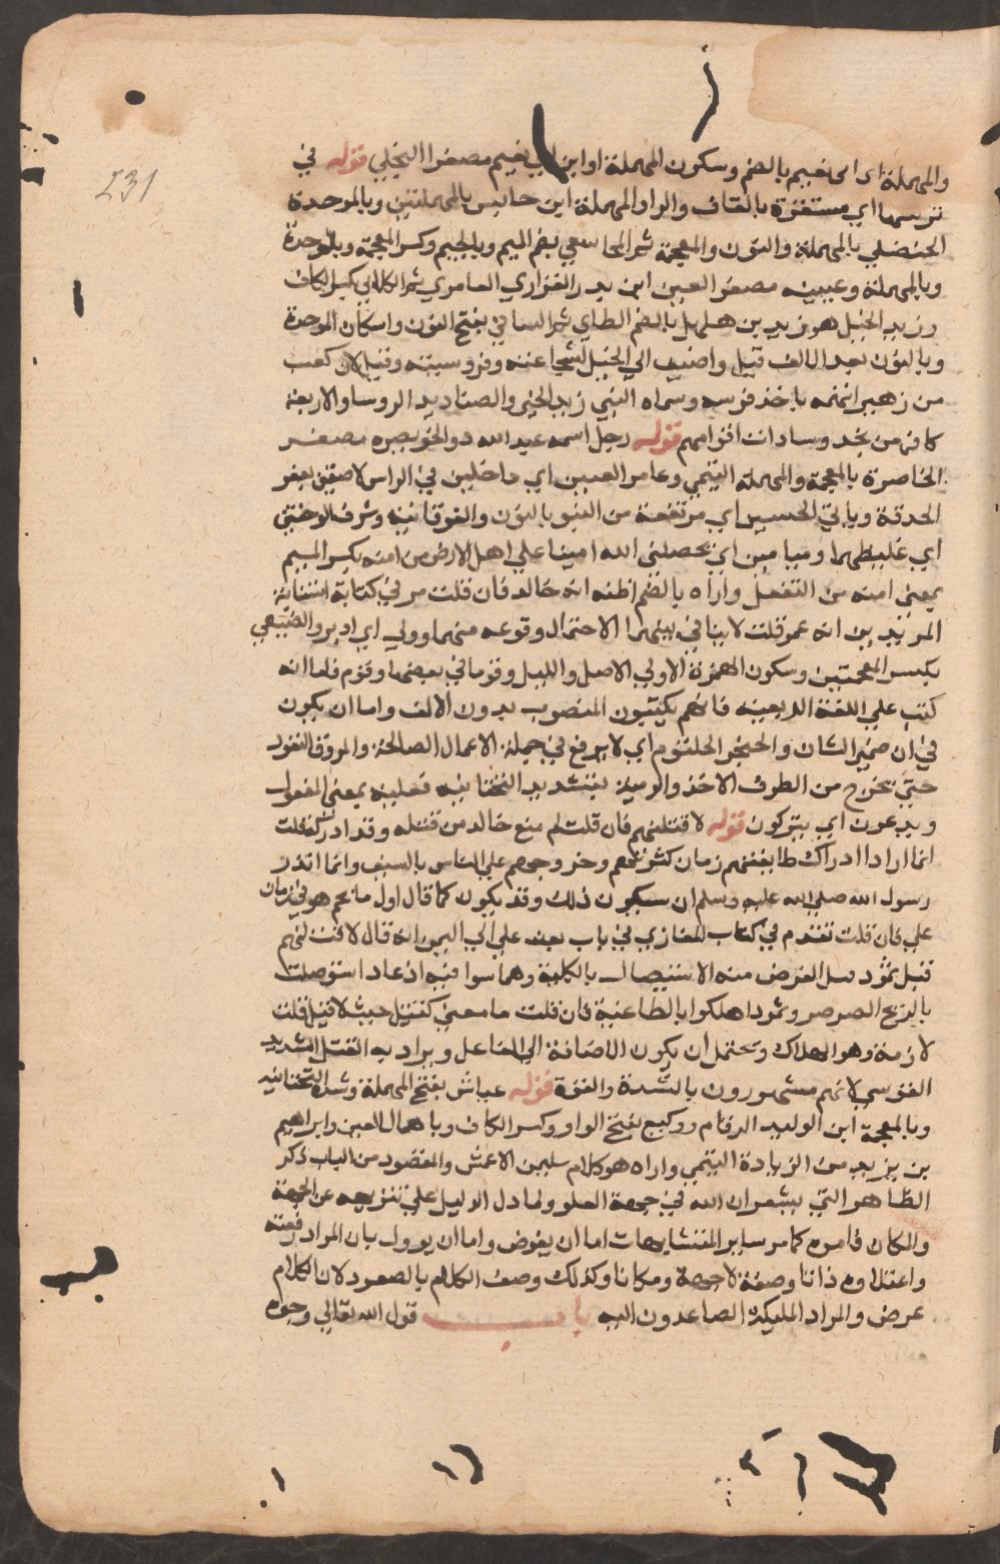 231
والمهملة اى ابى نعيم بالضم وسكون المهملة او ابن ابي نعيم مصغرا البجلي قوله في
تربتها اي مستقرة بالقاف والراء والمهملة ابن حابس بالمهملتين وبالموحدة
الحنضلي بالمهملة والنون والمعجمة ثم المجاشعي بضم الميم وبالجيم وكسر المعجمة وبالموحدة
وبالمهملة وعيينه مصغر العين ابن بدر الفزاري العامري ثم الكلابي بكسر الكاف
وزيد الخيل هو زيد بن هلهل بالضم الطاي ثم النبهاني بفتح النون واسكان الموحدة
وبالنون بعد الالف قيل واضيف الي الخيل لشجاعته وفروسيته وقيل لان كعب
من زهير اتهمه باخذ فرسه وسماه النبي زيد الخير والصناديد الروسا والاربعة
كانو من نجد وسادات اقوامهم قوله رجل اسمه عبد الله ذو الخويصره مصغر
الخاصرة بالمعجمة والمهملة التيمي وغاير العينين اي داخلين في الراس لاصقين بقعر
الحدقة وناتي الجبين اي مرتفعة من النتو بالنون والفوقانية ومشرف الوجنتين
اي غليظهما وميامين اي يحصلني الله امينا علي اهل الارض من امنه بكسر الميم
بمعنى امنه من التفعل واراه بالضم اظنه انه خالد فان قلت مر في كتابة استتابة
المرتدين انه عمر قلت لا ينافي بينهما الاحتمال وقوعه منهما وولي اي ادبر والضئضي
بكسر المعجمتين وسكون الهمزة الاولي الاصل والنسل وقوما في بعضها وقوم فلما انه
كتب علي اللغة الربعيه فانهم يكتبون المنصوب بدون الالف واما ان يكون
في ان ضمير الشان والحنجر الحلقوم اي لا يرفع في جملة الاعمال الصالحة والمروق النفوذ
حتي يخرج من الطرف الاخر والرمية بتشديد التحتانيه فعليه بمعني المفعول
ويدعون اي يتركون قوله لاقتلنهم فان قلت لم منع خالد من قتله وقد ادركه قلت
انما اراد ادراك طايفتهم زمان كثرتهم وخروجهم علي الناس بالسيف وانما انذر
رسول الله صلي الله عليه وسلم ان سيكون ذلك وقد يكون كما قال اول ما نجم هو في زمان
علي فان قلت تقدم في كتاب المغازي في باب بعث علي الي اليمن انه قال لاقتلنهم
قتل ثمود قلت الغرض منه الاستيصال بالكلية وهما سوا فيه اذ عاد استوصلت
بالريح الصرصر وثمود اهلكوا بالطاغية فان قلت ما معني كقتل حيث لا قتل قلت
لازمة وهو الهلاك ويحتمل ان يكون الاضافة الي الفاعل ويراد به القتل الشديد
القوي لانهم مشهورون بالشدة والقوة قوله عياش بفتح المهملة وشدة التحتانيه
وبالمعجمة ابن الوليد الرقام ووكيع بفتح الواو وكسر الكاف وباهمال العين وابراهيم
بن يزيد من الزيادة التيمي واراه هو كلام سليمن الاعمش والمقصود من الباب ذكر
الظاهر التي يشعر ان الله في جهة العلو ولما دل الدليل علي تنزيهه عن الجهة
والمكان فامره كما مر ساير المتشابهات اما ان يفوض واما ان يوول بان المراد رفعته
واعتلاوه ذاتا وصفة لا جهة ومكانا وكذلك وصف الكلام بالصعود لان الكلام
عرض والمراد المليكة الصاعدون اليه باب قول الله تعالي وجوه